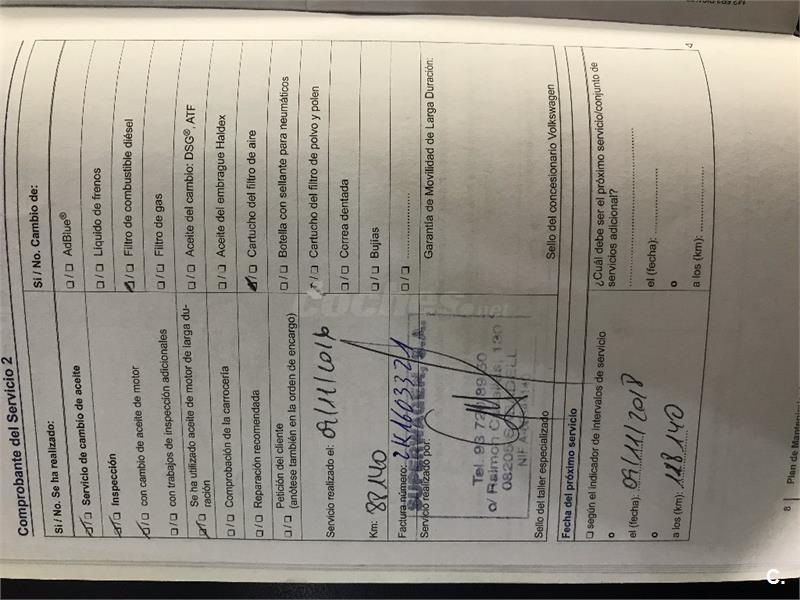 Comprobante del Servicio 2
Sí / No. Se ha realizado:
Servicio de cambio de aceite
Inspección
con cambio de aceite de motor
con trabajos de inspección adicionales
Se ha utilizado aceite de motor de larga du-
ración
Comprobación de la carrocería
Reparación recomendada
Petición del cliente
(anótese también en la orden de encargo)
Servicio realizado el: 09/11/2016
Km: 88140
Factura número:
Servicio realizado por:
Tel. 93
c/ Raimon
Sello del taller especializado
Sí / No. Cambio de:
AdBlue®
Líquido de frenos
Filtro de combustible diésel
Filtro de gas
Aceite del cambio: DSG®, ATF
Aceite del embrague Haldex
Cartucho del filtro de aire
Botella con sellante para neumáticos
Cartucho del filtro de polvo y polen
Correa dentada
Bujías
Garantía de Movilidad de Larga Duración:
Sello del concesionario Volkswagen
Fecha del próximo servicio
según el indicador de intervalos de servicio
o
el (fecha): 09/11/2018
o
a los (km): 118140
¿Cuál debe ser el próximo servicio/conjunto de
servicios adicional?
el (fecha):
o
a los (km):
8
Plan de
coches.net
C.